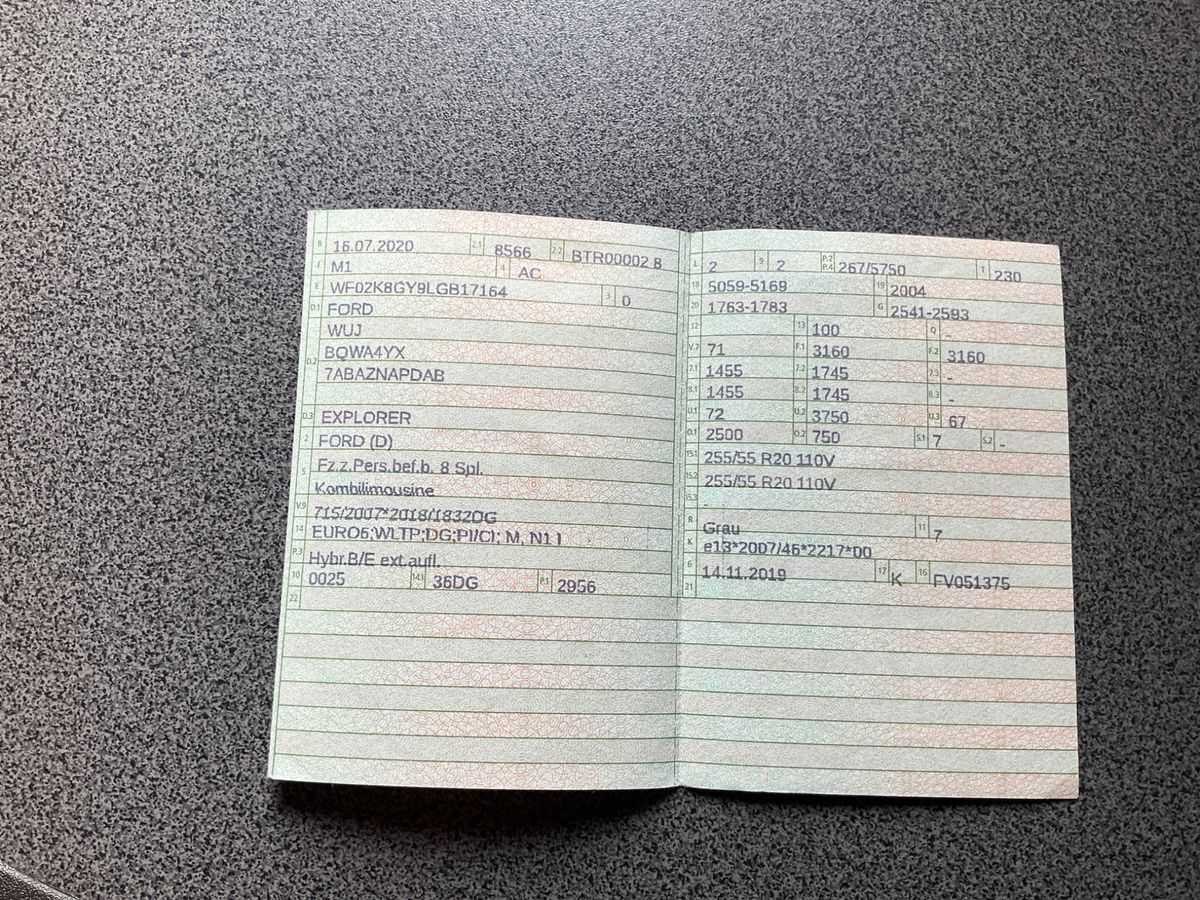 B 16.07.2020 2.1 8566 2.2 BTR00002 8
J M1 4 AC
E WF02K8GY9LGB17164 3 0
D.1 FORD
WUJ
D.2 BQWA4YX
7ABAZNAPDAB
D.3 EXPLORER
2 FORD (D)
5 Fz.z.Pers.bef.b. 8 Spl.
Kombilimousine
V.9 715/2007*2018/1832DG
14 EURO6;WLTP;DG;PI/CI; M, N1 I
P.3 Hybr.B/E ext.aufl.
10 0025 14.1 36DG P.1 2956
22
L 2 9 2 P.2 P.4 267/5750 T 230
18 5059-5169 19 2004
20 1763-1783 G 2541-2593
12 13 100 Q
V.7 71 F.1 3160 F.2 3160
7.1 1455 7.2 1745 7.3 -
8.1 1455 8.2 1745 8.3 -
U.1 72 U.2 3750 U.3 67
O.1 2500 O.2 750 S.1 7 S.2 -
15.1 255/55 R20 110V
15.2 255/55 R20 110V
15.3 -
R Grau 11 7
K e13*2007/46*2217*00
6 14.11.2019 17 K 16 FV051375
21